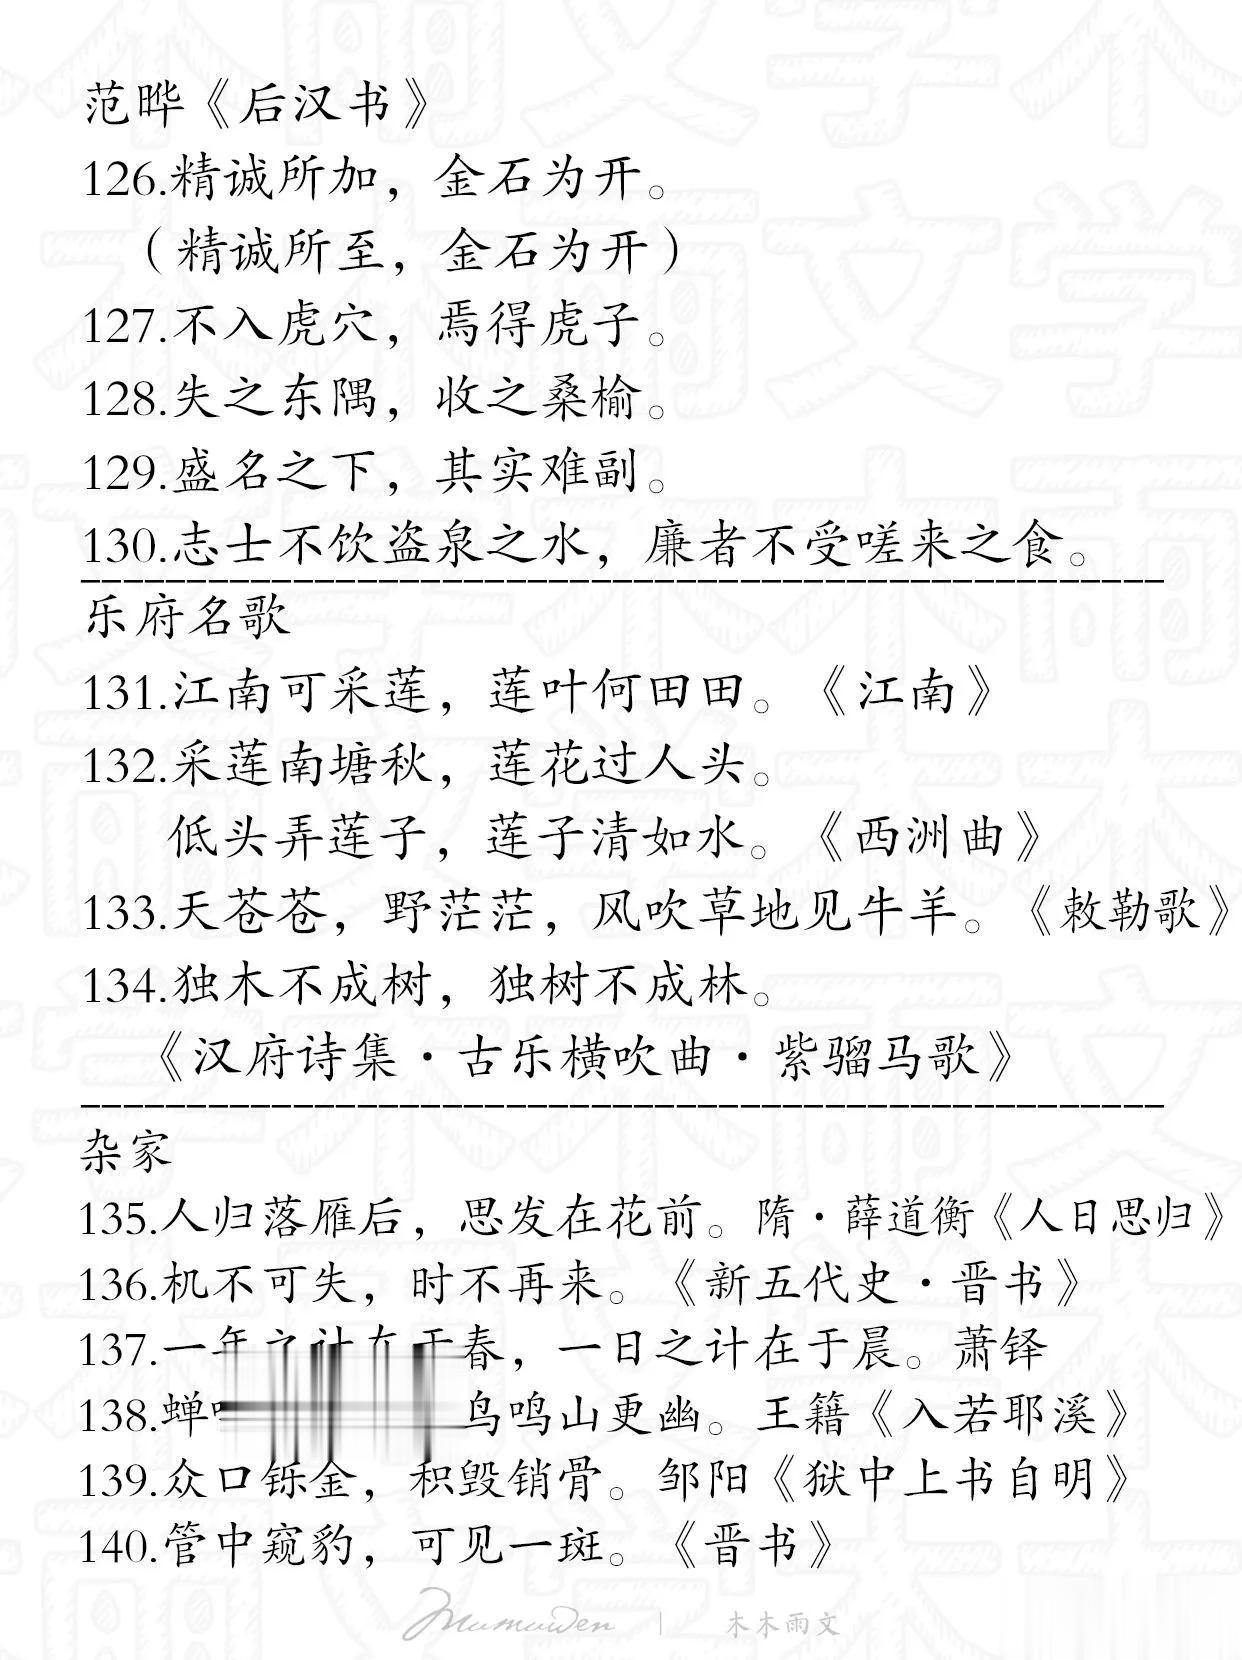 范晔《后汉书》
126.精诚所加，金石为开。
（精诚所至，金石为开）
127.不入虎穴，焉得虎子。
128.失之东隅，收之桑榆。
129.盛名之下，其实难副。
130.志士不饮盗泉之水，廉者不受嗟来之食。
乐府名歌
131.江南可采莲，莲叶何田田。《江南》
132.采莲南塘秋，莲花过人头。
低头弄莲子，莲子清如水。《西洲曲》
133.天苍苍，野茫茫，风吹草地见牛羊。《敕勒歌》
134.独木不成树，独树不成林。
《汉府诗集·古乐横吹曲·紫骝马歌》
杂家
135.人归落雁后，思发在花前。隋·薛道衡《人日思归》
136.机不可失，时不再来。《新五代史·晋书》
137.一年之计在于春，一日之计在于晨。萧铎
138.蝉 鸟鸣山更幽。王籍《入若耶溪》
139.众口铄金，积毁销骨。邹阳《狱中上书自明》
140.管中窥豹，可见一斑。《晋书》
Mumuwen | 木木雨文